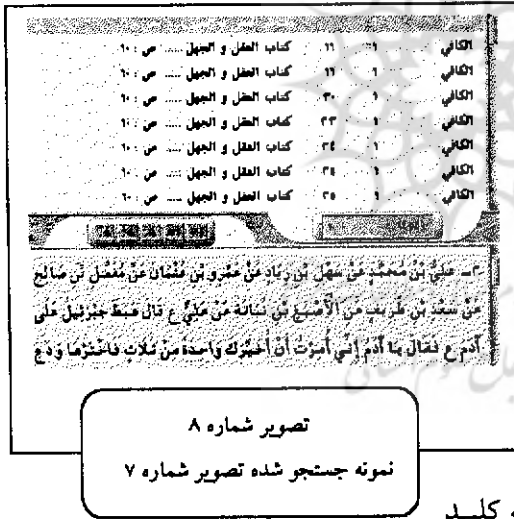 الكافي ١ ١٦ كتاب العقل و الجهل ..... ص : ١٠
الكافي ١ ١٦ كتاب العقل و الجهل ..... ص : ١٠
الكافي ١ ٣٠ كتاب العقل و الجهل ..... ص : ١٠
الكافي ١ ٣٣ كتاب العقل و الجهل ..... ص : ١٠
الكافي ١ ٣٤ كتاب العقل و الجهل ..... ص : ١٠
الكافي ١ ٣٤ كتاب العقل و الجهل ..... ص : ١٠
الكافي ١ ٣٥ كتاب العقل و الجهل ..... ص : ١٠
٢- عَلِيُّ بْنُ مُحَمَّدٍ عَنْ سَهْلِ بْنِ زِيَادٍ عَنْ عَمْرِو بْنِ عُثْمَانَ عَنْ مُفَضَّلِ بْنِ صَالِحٍ
عَنْ سَعْدِ بْنِ طَرِيفٍ عَنِ الْأَصْبَغِ بْنِ نُبَاتَةَ عَنْ عَلِيٍّ ع قَالَ هَبَطَ جَبْرَئِيلُ عَلَى
آدَمَ ع فَقَالَ يَا آدَمُ إِنِّي أُمِرْتُ أَنْ أُخَيِّرَكَ وَاحِدَةً مِنْ ثَلَاثٍ فَاخْتَرْهَا وَ دَعِ
تصویر شماره ۸
نمونه جستجو شده تصویر شماره ۷
کلید